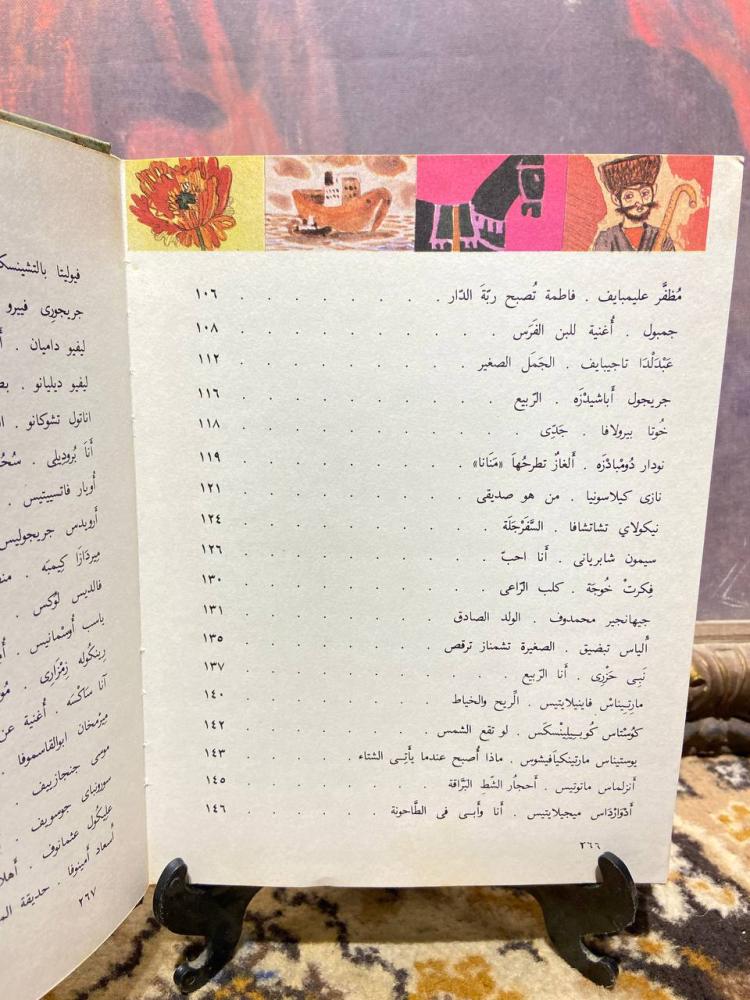 مُظفَّر عليمبايف . فاطمة تُصبح ربّةَ الدّار . . . . . . . ١٠٦
جمبول . أُغنية للبن الفَرَس . . . . . . . . . ١٠٨
عَبْدَلْدَا تاجيبايف . الجَمَل الصغير . . . . . . ١١٢
جريجول أَباشيدْزَه . الرّبيع . . . . . . . . ١١٦
خُوتا بيرولافا . جَدّى . . . . . . . . ١١٨
نودار دُومْبادْزَه . أَلغازٌ تطرحُهَا «مَنَانا» . . . . . . ١١٩
نازى كيلاسونيا . من هو صديقى . . . . . . . ١٢١
نيكولاي تشاتشافا . السَّفَرْجَلَة . . . . . . . . ١٢٤
سيمون شابريانى . أَنا احبّ . . . . . . . . ١٢٦
فِكرتْ خُوجَة . كلب الرّاعى . . . . . . . . ١٣٠
جيهانجير محمدوف . الولد الصادق . . . . . . ١٣١
أَلياس تبضيق . الصغيرة تشمناز ترقص . . . . . . ١٣٥
نَبِى خَزْرِى . أَنا الرّبيع . . . . . . . . ١٣٧
مارتِيناسْ فاينيلايتيس . الرّيح والخياط . . . . . . ١٤٠
كوُسْتاس كُوبِيلِينْسكَس . لو تقع الشمس . . . . . . ١٤٢
يوستيناس مارتينكيَافيشوس . ماذا أُصبح عندما يأْتِى الشتاء . . . . ١٤٣
أنزلماس ماتوتيس . أَحجارُ الشّطِ البَرّاقة . . . . . . ١٤٥
أَدْوَارْدَاس ميجيلايتيس . أَنا وأَبى فى الطَّاحونة . . . . . ١٤٦
٢٦٦
فيوليتا
جريجورى فييرو
ليفيو داميان .
ليفيو ديليانو .
اناتول تشوكانو .
أَنَا بُرودِيلى .
أُويار فاتسييتيس .
أَرويدس جريجوليس
ميردَازَا كِيمبَه .
فالديس لوُكس .
ياسب أُوسْمانيس .
رِينكُوله زِمْزَارِى .
آنا سَاكْسَه . أُغنية
ميرْمخان ابوالقاسموفا
موسى جنجازييف
سورونباى جوسويف
عليكول عثمانوف .
أَسعاد أَمينوفا . حديقة
٢٦٧